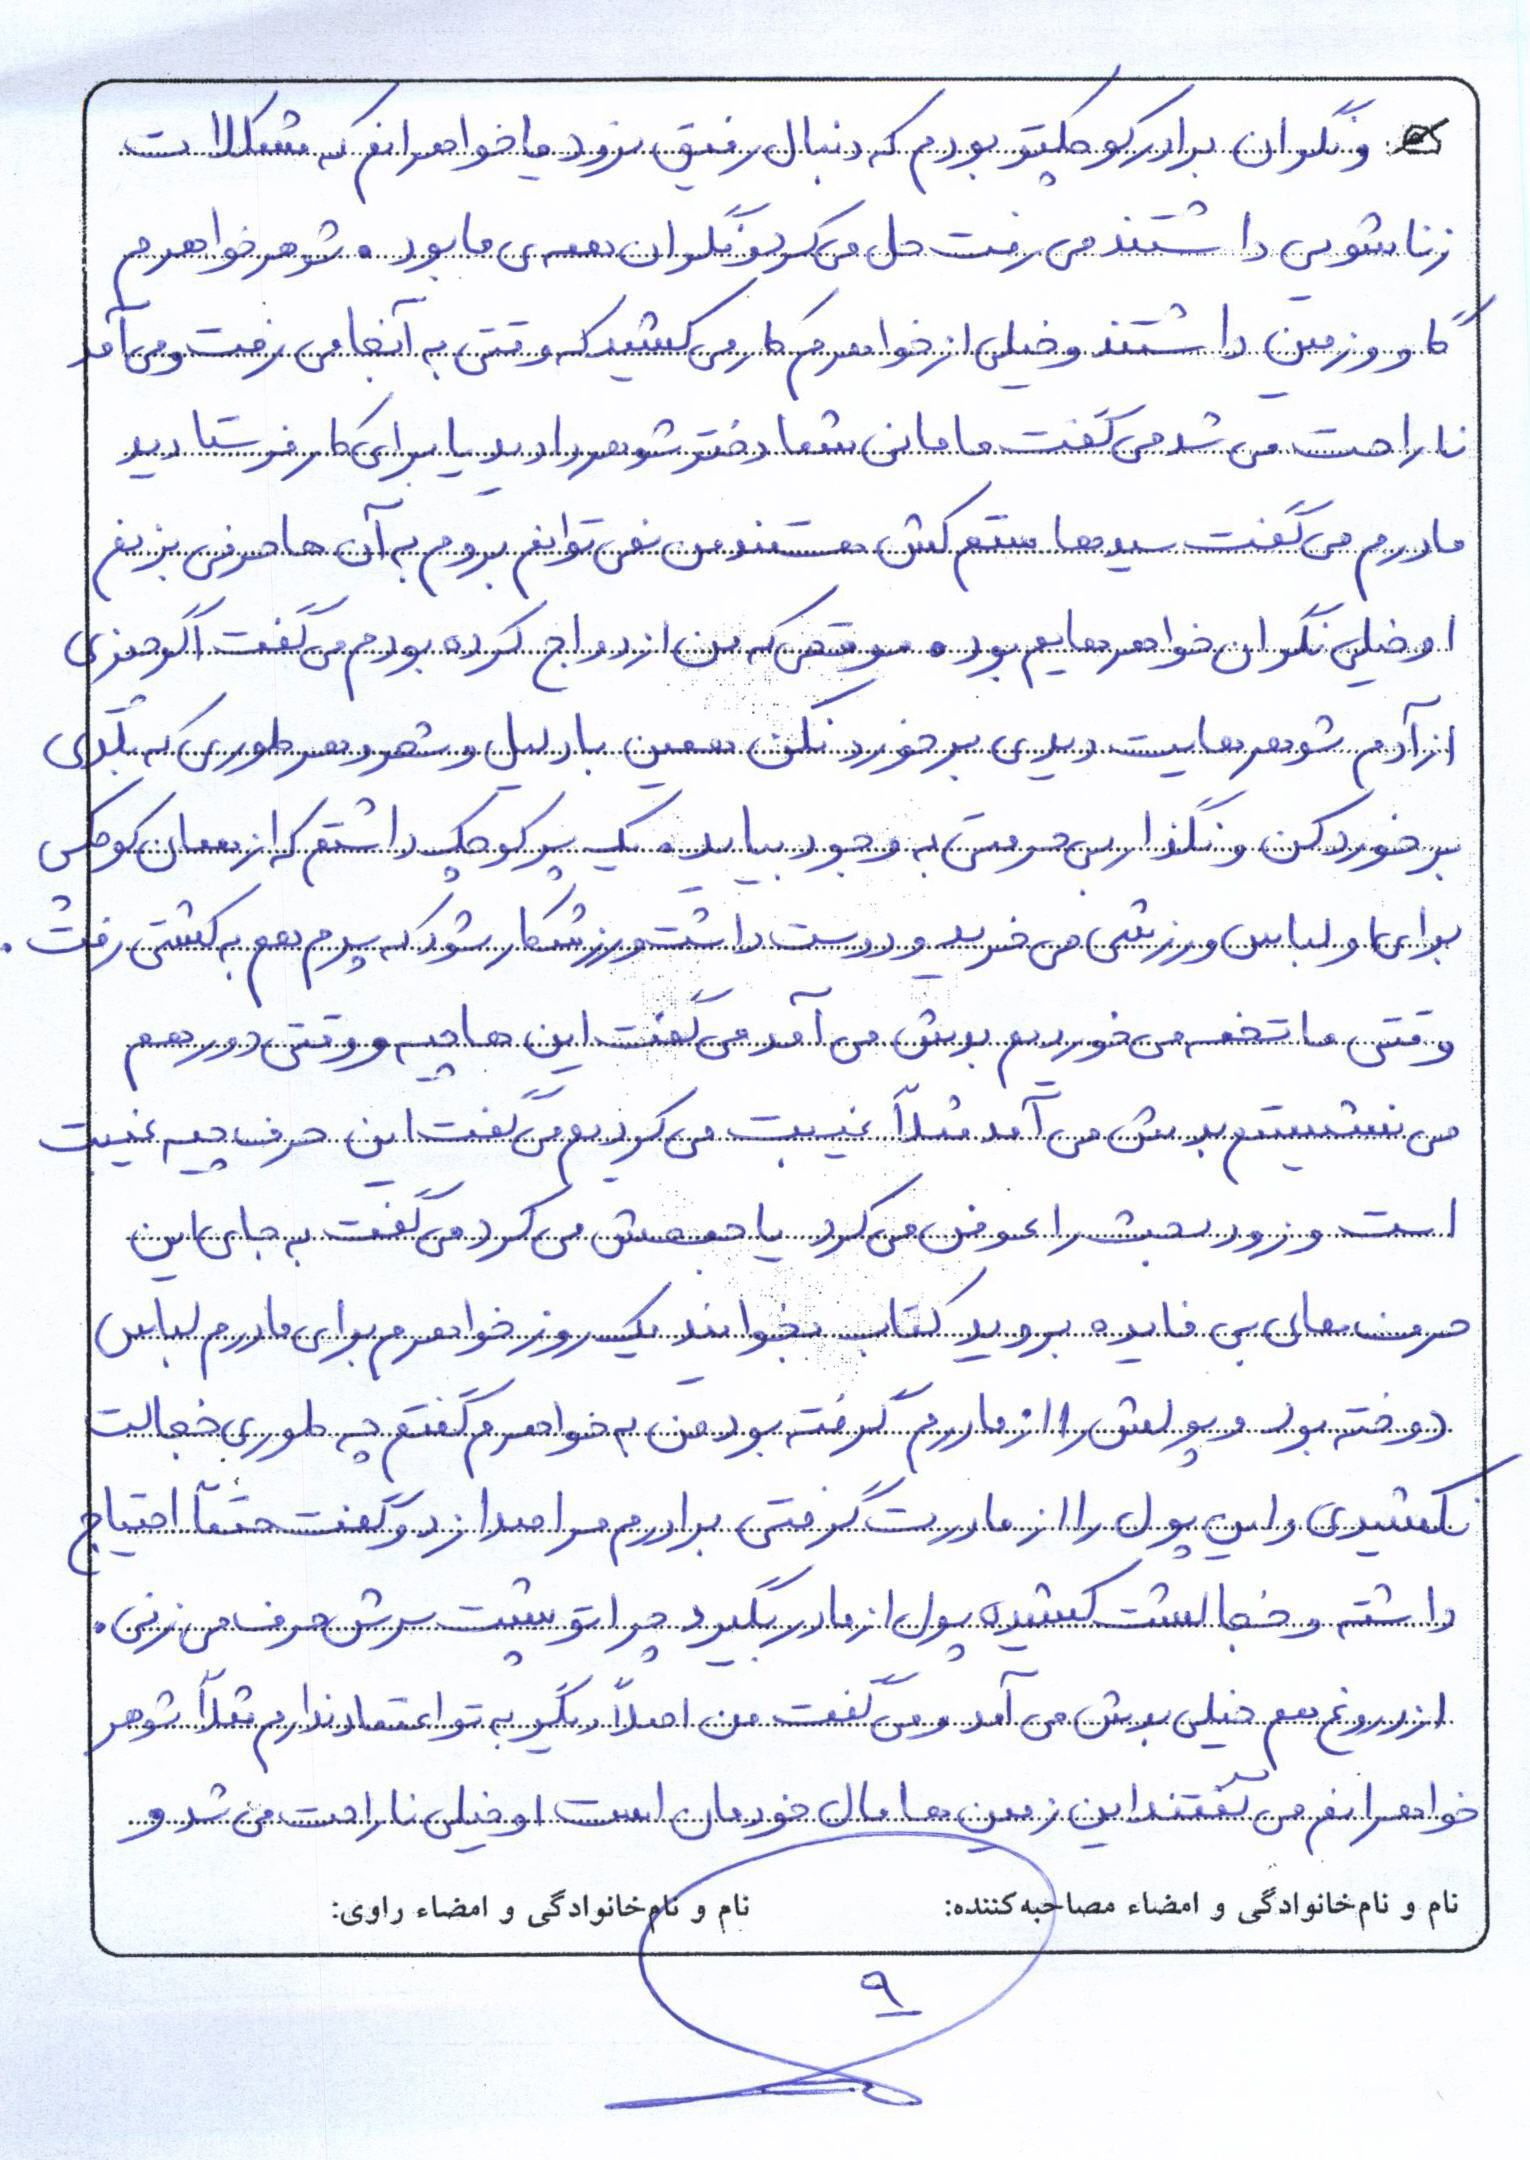 ونگران برادر کوچکترم بودم که دنبال رفیق نرود یا خواهرانم که مشکلات
زناشویی داشتند می رفت حل می کرد و نگران همه ی ما بود. شوهر خواهرم
گاو و زمین داشتند و خیلی از خواهرم کار می کشید که وقتی به آنجا می رفت و می آمد
ناراحت می شد می گفت مامانی شما دختر شوهر دادید یا برای کار فرستادید
مادرم می گفت سیدها ستم کش هستند من نمی توانم بروم به آن ها حرفی بزنم
او خیلی نگران خواهرهایم بود. موقعی که من ازدواج کرده بودم می گفت اگر چیزی
از آدم شوهرهایت دیدی برخورد نکن همین با دلیل و شعر و هر طوری که بلدی
برخورد کن و نگذار بی حرمتی به وجود بیاید. یک پسر کوچک داشتم که از همان کوچکی
برای او لباس ورزشی می خرید و دوست داشت ورزشکار شود که پسرم هم به کشتی رفت.
وقتی ما تخمه می خوردیم بدش می آمد می گفت این ها چیه و وقتی دور هم
می نشستیم بدش می آمد مثلاً غیبت می کردیم می گفت این حرف چیه غیبت
است و زود بحث را عوض می کرد یا جمعش می کرد می گفت به جای این
حرف های بی فایده بروید کتاب بخوانید یک روز خواهرم برای مادرم لباس
دوخته بود و پولش را از مادرم گرفته بود من به خواهرم گفتم چه طوری خجالت
نکشیدی و این پول را از مادرت گرفتی برادرم مرا صدا زد و گفت حتماً احتیاج
داشته و خجالت کشیده پول از مادر بگیرد چرا تو پشت سرش حرف می زنی.
از دروغ هم خیلی بدش می آمد و می گفت من اصلاً دیگر به تو اعتماد ندارم مثلاً شوهر
خواهرانم می گفتند این زمین ها مال خودمان است او خیلی ناراحت می شد و
نام و نام‌خانوادگی و امضاء مصاحبه‌کننده: نام و نام‌خانوادگی و امضاء راوی:
۹